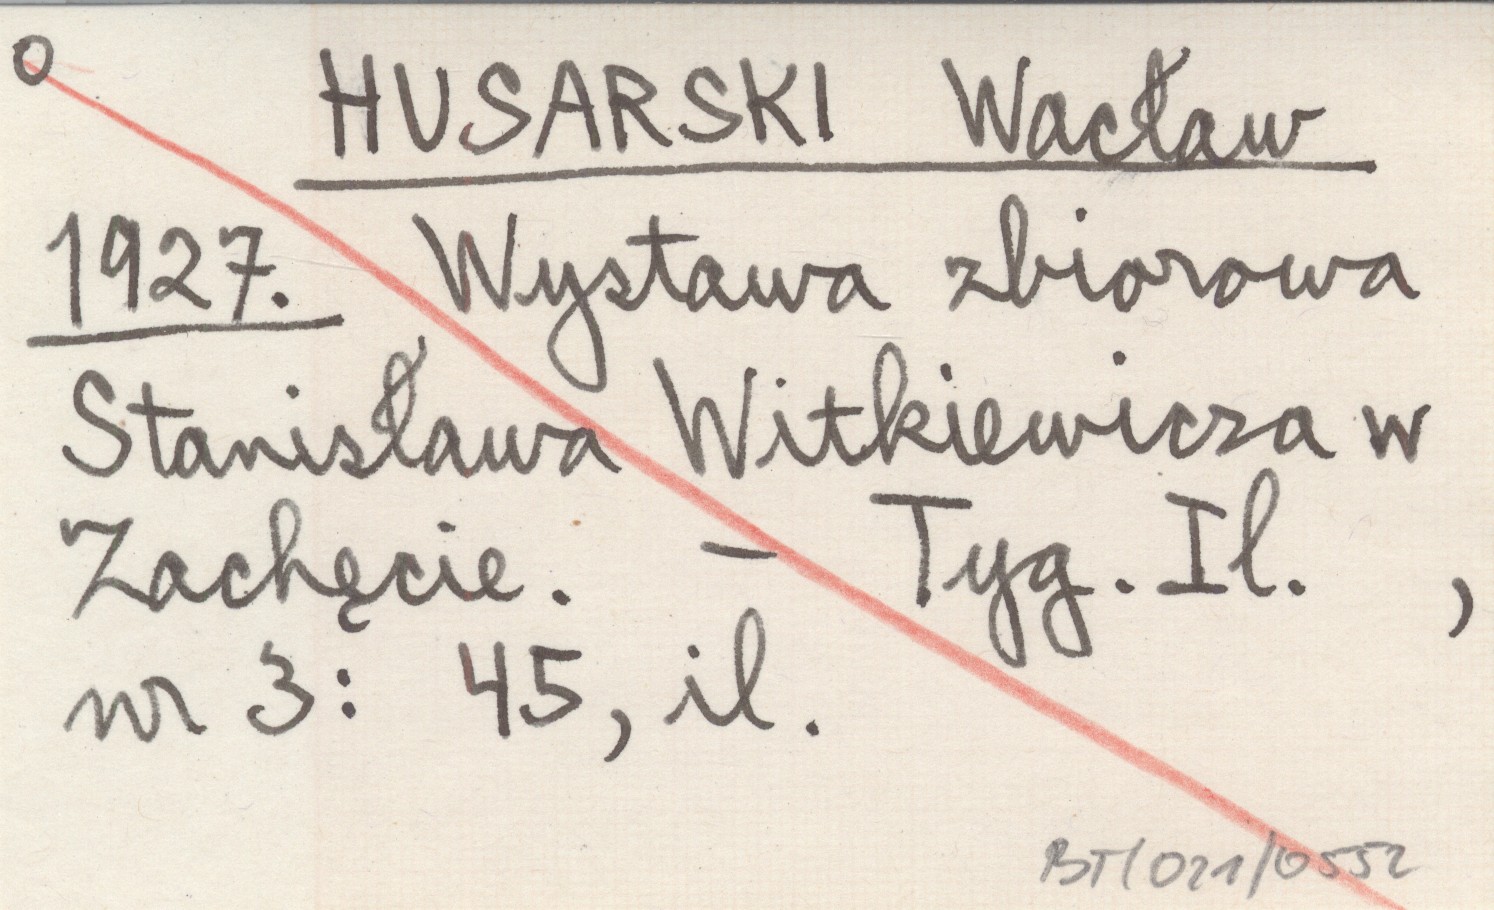 o
HUSARSKI Wacław
1927. Wystawa zbiorowa
Stanisława Witkiewicza w
Zachęcie. – Tyg. Il. ,
nr 3: 45, il.
BT/021/0552